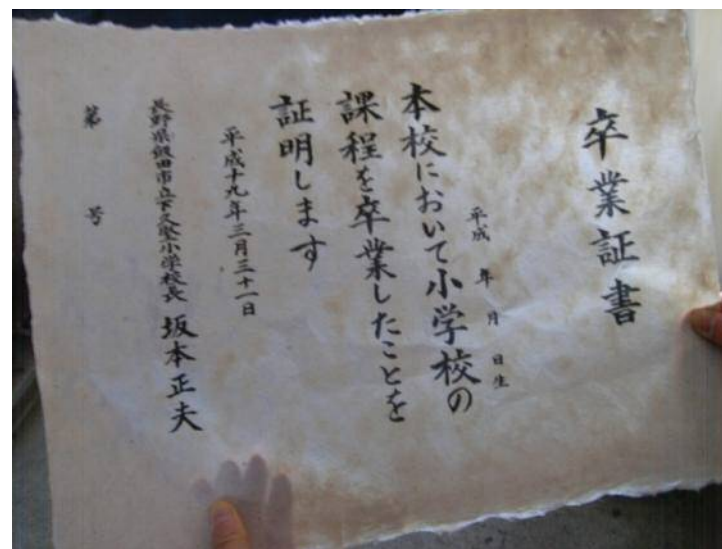 卒業証書
平成 年 月 日生
本校において小学校の
課程を卒業したことを
証明します
平成十九年三月三十一日
長野県飯田市立下久堅小学校長 坂本正夫
第 号